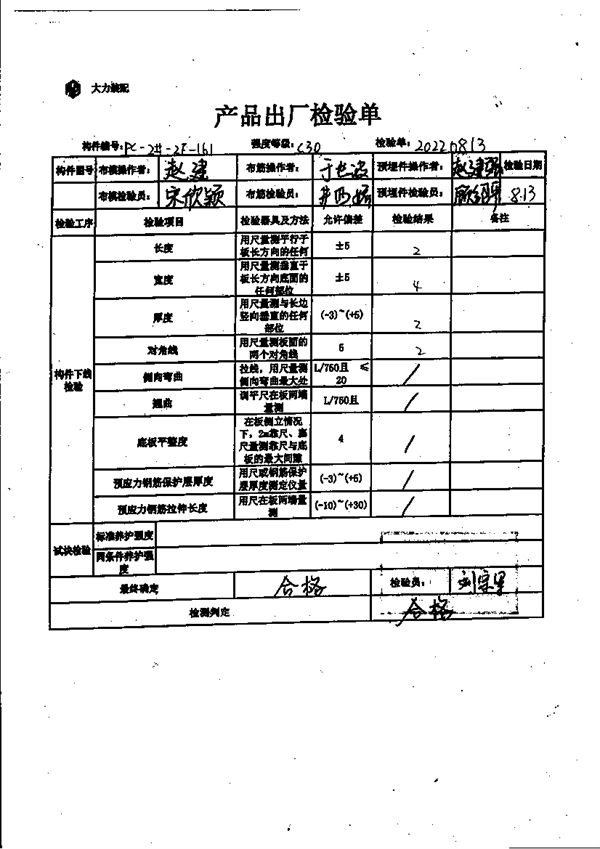 大力装配
产品出厂检验单
构件编号: PC-2#-2F-161 强度等级: C30 检验单: 20220813
构件图号 布模操作者: 赵建 布筋操作者: 预埋件操作者: 赵建强 检验日期
布模检验员: 宋欣颖 布筋检验员: 预埋件检验员: 8.13
检验工序 检验项目 检验器具及方法 允许偏差 检验结果 备注
构件下线检验
长度 用尺量测平行于板长方向的任何 ±5 2
宽度 用尺量测垂直于板长方向底面的任何部位 ±5 4
厚度 用尺量测与长边竖向垂直的任何部位 (-3)~(+5) 2
对角线 用尺量测板面的两个对角线 5 2
侧向弯曲 拉线,用尺量测侧向弯曲最大处 L/750且 ≤20 /
翘曲 调平尺在板两端量测 L/750且 /
底板平整度 在板侧立情况下,2m靠尺、塞尺量测靠尺与底板的最大间隙 4 /
预应力钢筋保护层厚度 用尺或钢筋保护层厚度测定仪量 (-3)~(+5) /
预应力钢筋拉伸长度 用尺在板两端量测 (-10)~(+30) /
试块检验
标准养护强度
同条件养护强度
最终确定 合格 检验员:
检测判定 合格